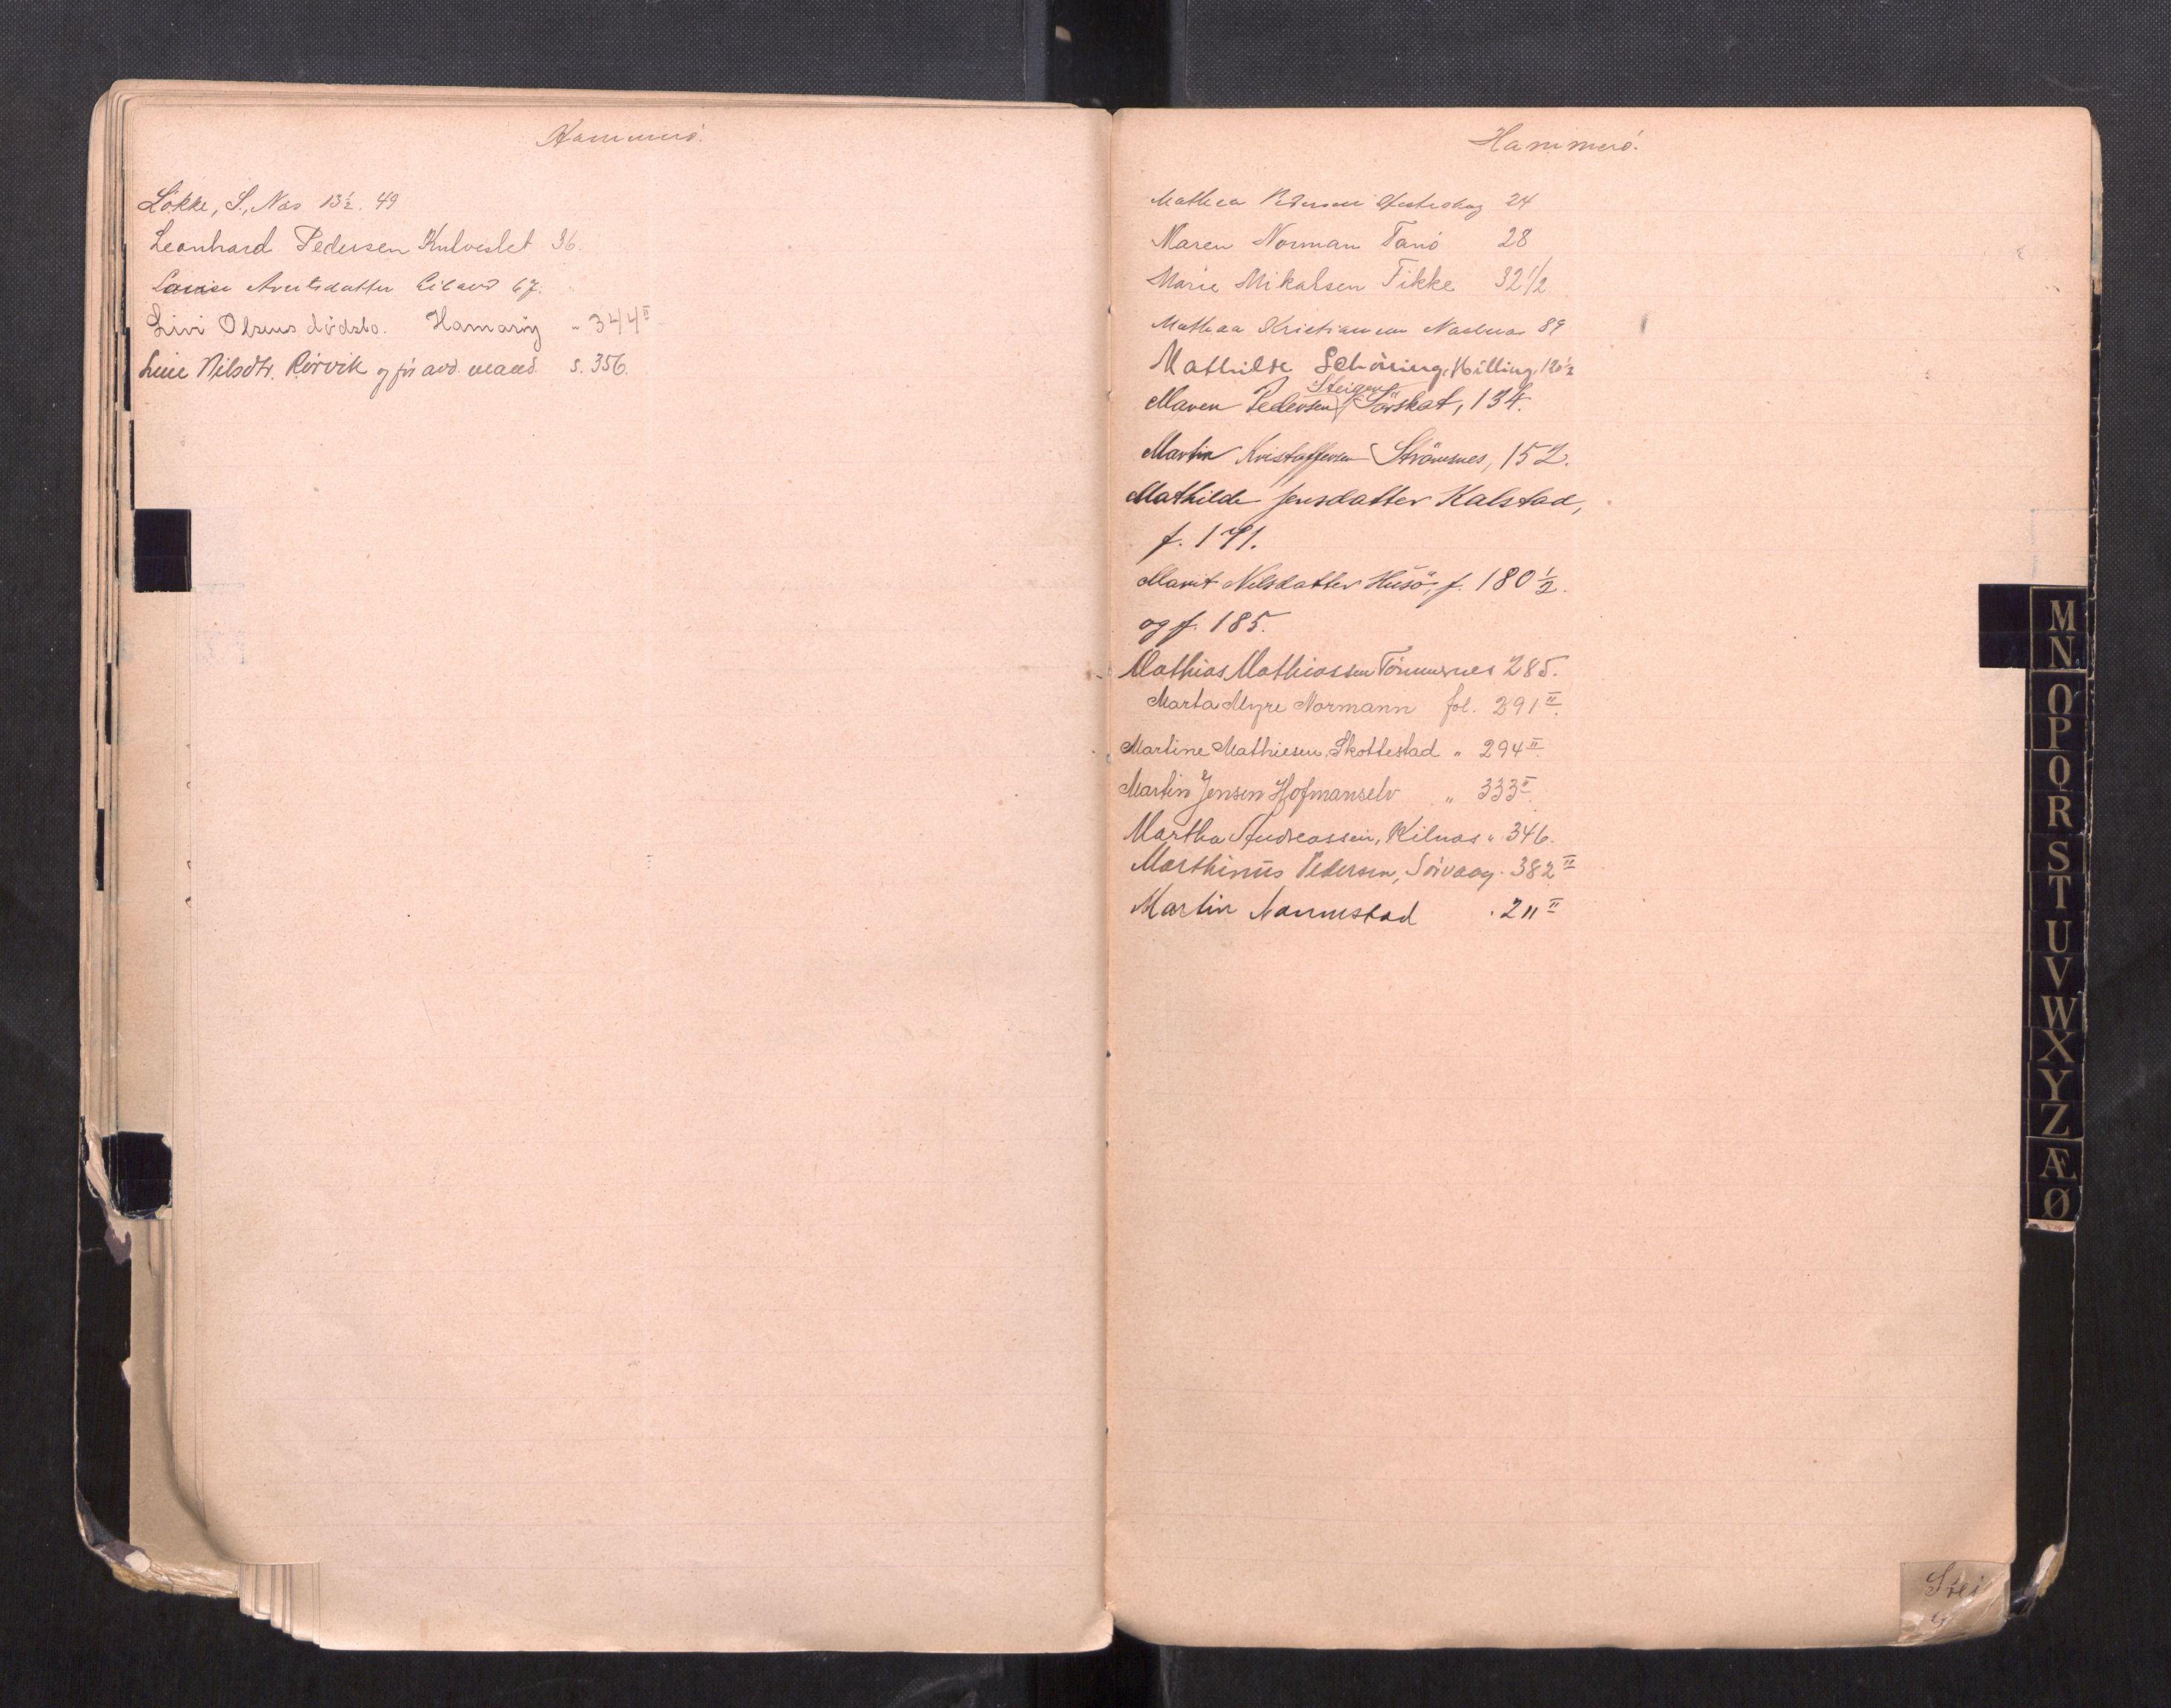 Hammerö.
Løkke, S., Nes 13½. 49
Leonhard Pedersen Kulveslet 36.
Arntsdatter 67.
Livi Olsens dödsbo. Hamarøy " 344 II
Line Nilsdtr. Rørvik og før avd. mand s. 356.
Hammerö.
Mathea Pedersen 24
Maren Norman Tanö 28
Marie Mikalsen Fikke 32 1/2
Mathea Kristiansen 89
Mathilde Schöning, Killing, 120½
Steigen
Maren Pedersen Sörskot, 134.
Martin Kristoffersen Strömsnes, 152.
Mathilde Jensdatter Kalstad,
f. 171.
Marit Nilsdatter Husö, f. 180 ½.
og f. 185.
Mathias Mathiassen Tömmernes 285.
Marta Myre Normann fol. 291 II.
Martine Mathiesen, Skottestad " 294 II.
Martin Jensen Hofmanselv " 333 II.
Martha Andreassen, Kilnes " 346.
Marthinus Pedersen, Sørvaag. 382 II
Martin Nannestad . 211 II
M
N
O
P
Q
R
S
T
U
V
W
X
Y
Z
Æ
Ø
Stei
g